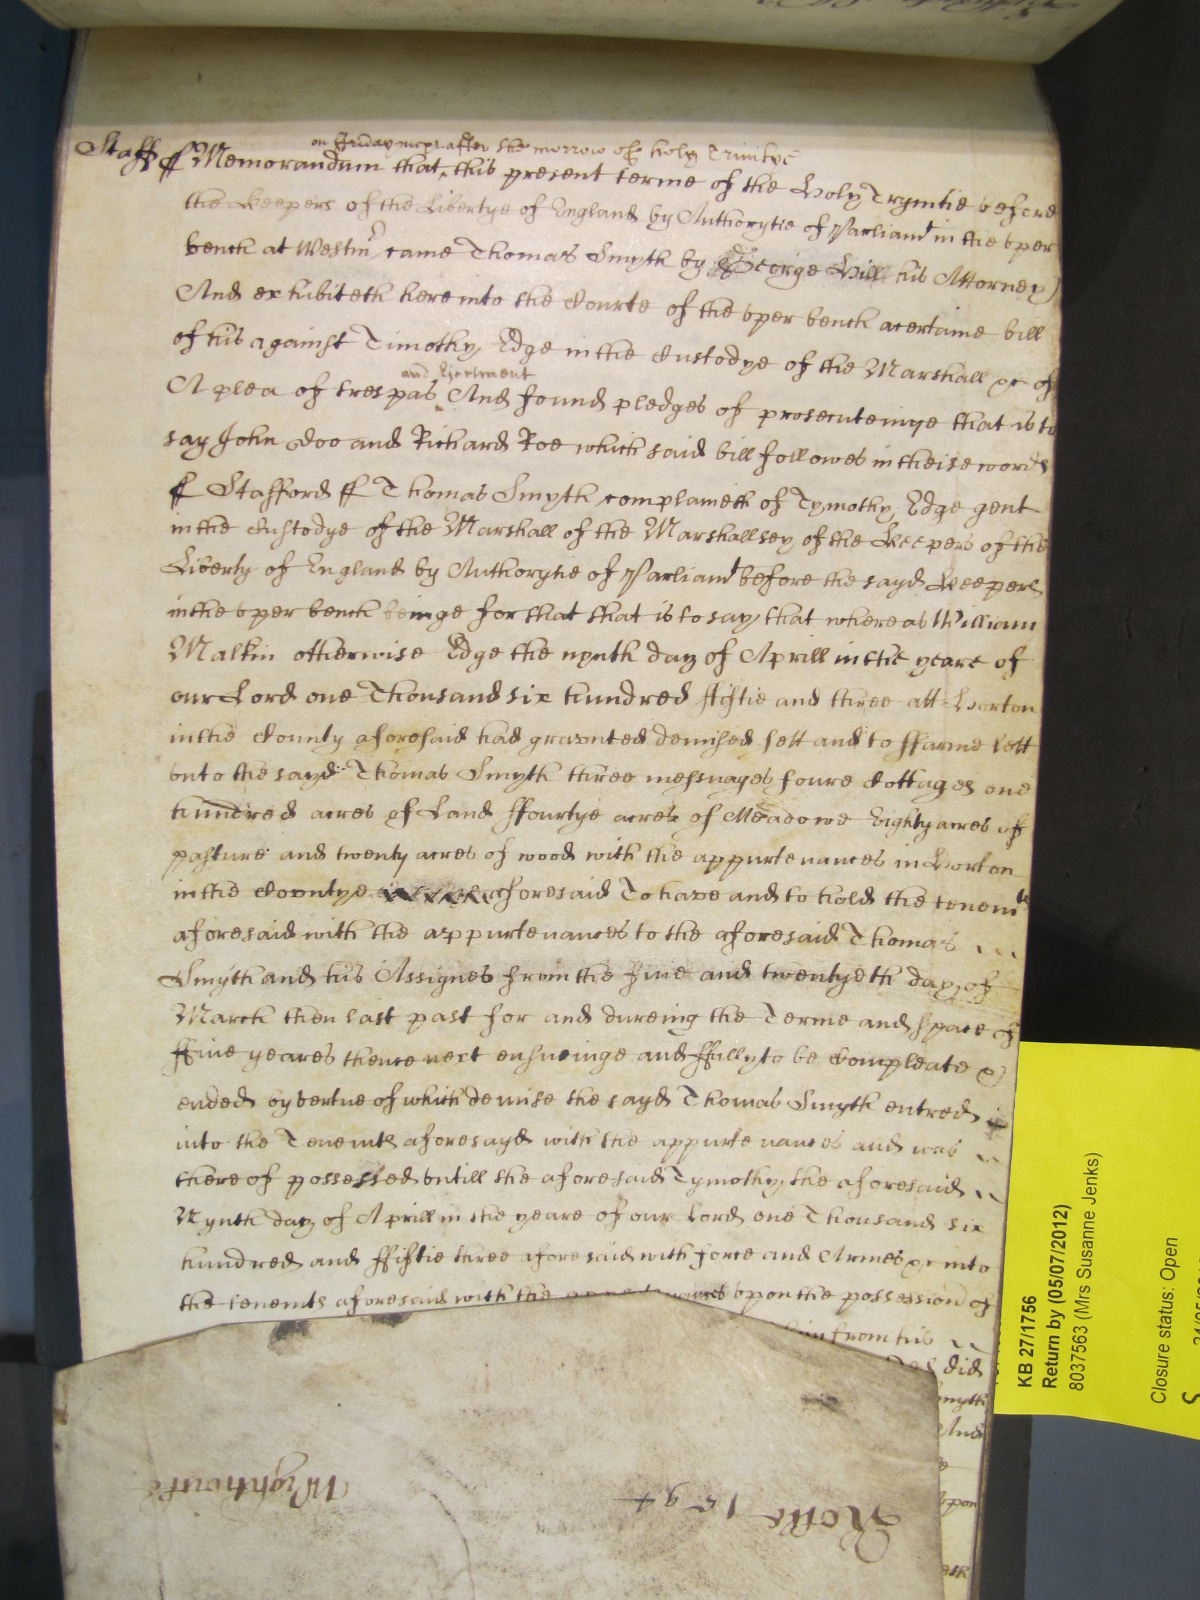 Staff ss Memorandum that on Friday next after the morrow of holy Trinitye this present terme of the Holy Trynitie before
the Keepers of the Libertye of England by Authorytie of Parliamt in the vper
bench at Westmr came Thomas Smyth by George Hill his Attorney
And exhibiteth here into the Courte of the vper bench acertaine bill
of his against Timothy Edge in the Custodye of the Marshall &c of
A plea of trespas and Eiectment And found pledges of prosecuteinge that is to
say John Doo and Richard Roe which said bill followes in theise words
ss Stafford ss Thomas Smyth complaineth of Tymothy Edge gent
in the Custodye of the Marshall of the Marshallsey of the Keepers of the
Liberty of England by Authorytie of Parliamt before the sayd Keepers
in the vper bench beinge for that that is to say that whereas William
Malkin otherwise Edge the nynth day of Aprill in the yeare of
our Lord one Thousand six hundred ffiftie and three att Horton
in the County aforesaid had graunted demised sett and to ffarme lett
vnto the sayd Thomas Smyth three messuages foure Cottages one
hundred acres of Land ffourtye acres of Meadowe Eighty acres of
pasture and twenty acres of wood with the appurtenances in Horton
in the Countye aforesaid To have and to hold the tenemts
aforesaid with the appurtenances to the aforesaid Thomas
Smyth and his Assignes from the five and twentyeth day of
March then last past for and dureing the Terme and space of
ffive yeares thence next ensueinge and ffully to be Compleate &
ended by vertue of which demise the sayd Thomas Smyth entred
into the Tenemts aforesayd with the appurtenances and was
there of possessed vntill the aforesaid Tymothy the aforesaid
Nynth day of Aprill in the yeare of our Lord one Thousand six
hundred and ffiftie three aforesaid with force and Armes &c into
the tenemts aforesaid with the vpon the possession of
him from his
did
Smyth
And
vpon
KB 27/1756
Return by (05/07/2012)
8037563 (Mrs Susanne Jenks)
Closure status: Open
Rotlo 1594
Wightwick